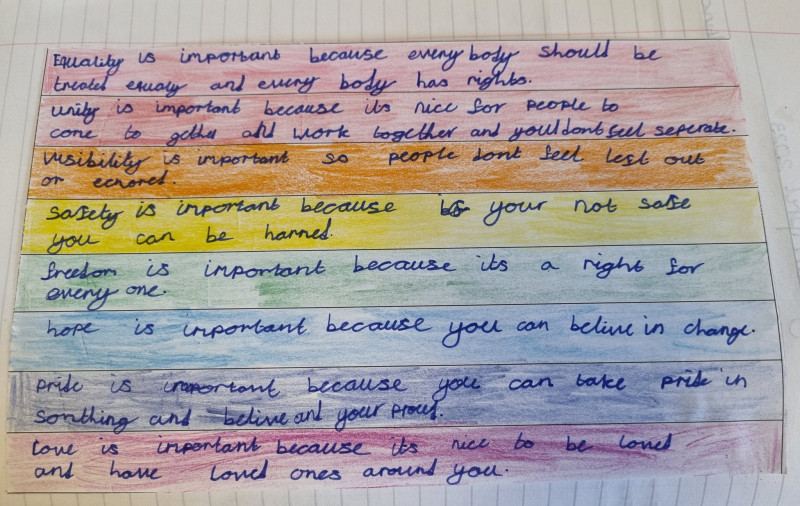 Equality is important because every body should be
treated equaly and every body has rights.
unity is important because its nice for people to
come to gether and work together and you'll dont feel seperate.
visibility is important so people dont feel left out
or ecnored.
safety is important because if your not safe
you can be harmed.
freedom is important because its a right for
every one.
hope is important because you can belive in change.
pride is important because you can take pride in
somthing and belive and your proud.
love is important because its nice to be loved
and have loved ones around you.